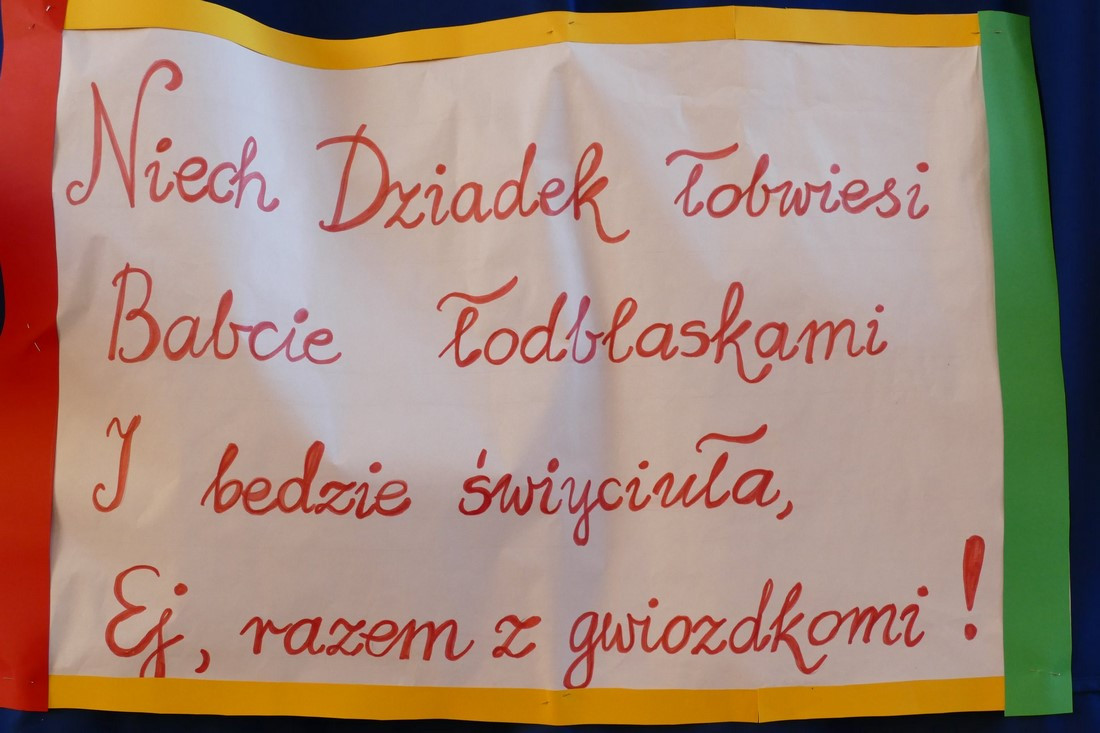 Niech Dziadek łobwiesi
Babcie łodblaskami
I bedzie świyciuła,
Ej, razem z gwiozdkomi!